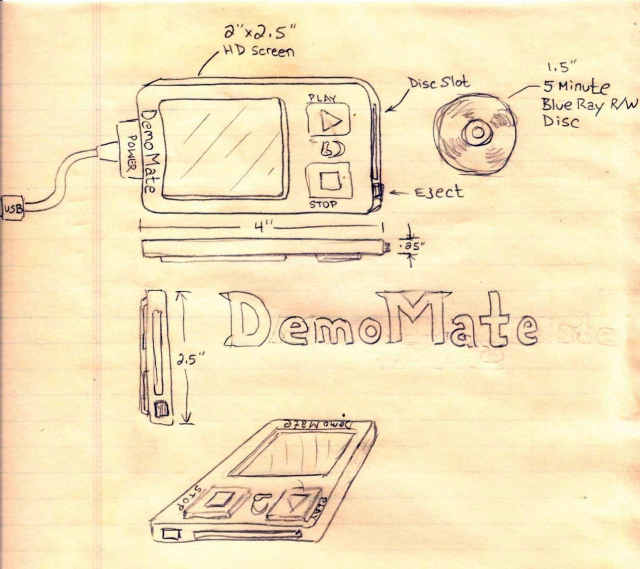 2"x2.5"
HD Screen
Disc Slot
1.5"
5 Minute
Blue Ray R/W
Disc
PLAY
DemoMate
POWER
USB
STOP
Eject
4"
.25"
2.5"
DemoMate
DemoMate
STOP
PLAY